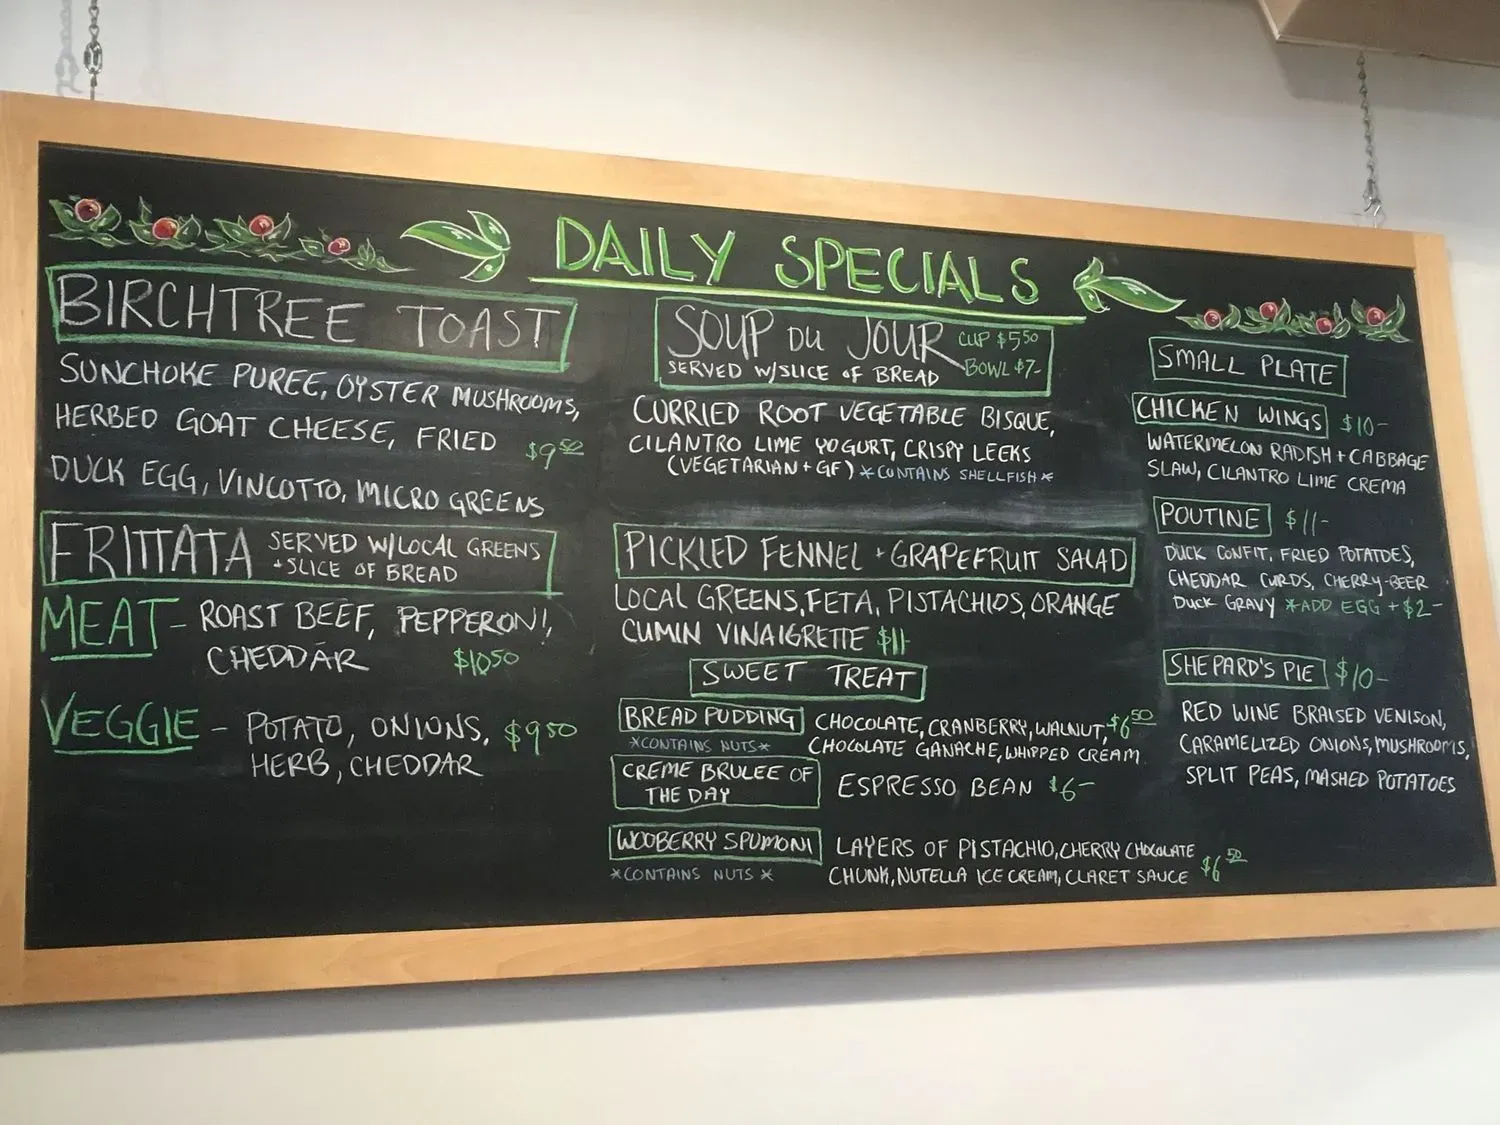 DAILY SPECIALS
BIRCHTREE TOAST
SUNCHOKE PUREE, OYSTER MUSHROOMS,
HERBED GOAT CHEESE, FRIED $9 50
DUCK EGG, VINCOTTO, MICRO GREENS
FRITTATA SERVED W/LOCAL GREENS
+SLICE OF BREAD
MEAT - ROAST BEEF, PEPPERONI,
CHEDDAR $10 50
VEGGIE - POTATO, ONIONS, $9 50
HERB, CHEDDAR
SOUP DU JOUR CUP $5 50
SERVED W/SLICE OF BREAD BOWL $7-
CURRIED ROOT VEGETABLE BISQUE,
CILANTRO LIME YOGURT, CRISPY LEEKS
(VEGETARIAN + GF) *CONTAINS SHELLFISH*
PICKLED FENNEL + GRAPEFRUIT SALAD
LOCAL GREENS, FETA, PISTACHIOS, ORANGE
CUMIN VINAIGRETTE $11-
SWEET TREAT
BREAD PUDDING CHOCOLATE, CRANBERRY, WALNUT, $6 50
*CONTAINS NUTS* CHOCOLATE GANACHE, WHIPPED CREAM
CREME BRULEE OF
THE DAY ESPRESSO BEAN $6-
WOOBERRY SPUMONI LAYERS OF PISTACHIO, CHERRY CHOCOLATE
*CONTAINS NUTS* CHUNK, NUTELLA ICE CREAM, CLARET SAUCE $6 50
SMALL PLATE
CHICKEN WINGS $10-
WATERMELON RADISH + CABBAGE
SLAW, CILANTRO LIME CREMA
POUTINE $11-
DUCK CONFIT, FRIED POTATOES,
CHEDDAR CURDS, CHERRY-BEER
DUCK GRAVY *ADD EGG + $2-
SHEPARD'S PIE $10-
RED WINE BRAISED VENISON,
CARAMELIZED ONIONS, MUSHROOMS,
SPLIT PEAS, MASHED POTATOES